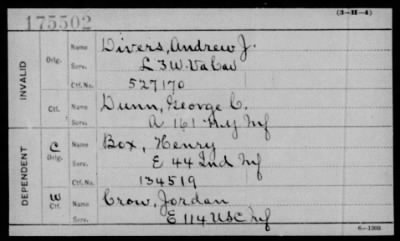 (3—H—4)
175502
INVALID
Orig.
Name Divers, Andrew J.
Serv. L 3 W. Va Cav
Ctf. No. 527170
Ctf.
Name Dunn, George C.
Serv. A 161 N.Y. Inf
DEPENDENT
C Orig.
Name Box, Henry
Serv. E 44 Ind Inf
Ctf. No. 134519
W Ctf.
Name Crow, Jordan
Serv. E 114 USC Inf
6—1308